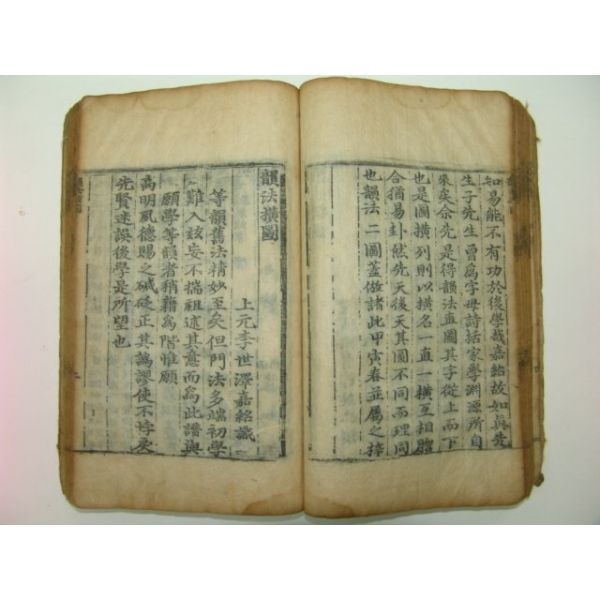 知易能不有功於後學哉嘉紹故如真
生子先生曾爲字母詩括家學淵源所自
來矣余先是得韻法直圖其字從上而下
也是圖橫列則以橫名一直一橫互相脗
合猶易卦然先天後天其圖不同而理同
也韻法二圖蓋倣諸此甲寅春並屬之梓
韻法橫圖
上元李世澤嘉紹識
等韻舊法精妙至矣但門法多端初學
難入玆妄不揣祖述其意而爲此譜與
願學等韻者稍藉爲階惟願
高明夙德賜之碱砭正其譌謬使不悖戾
先賢迷誤後學是所望也